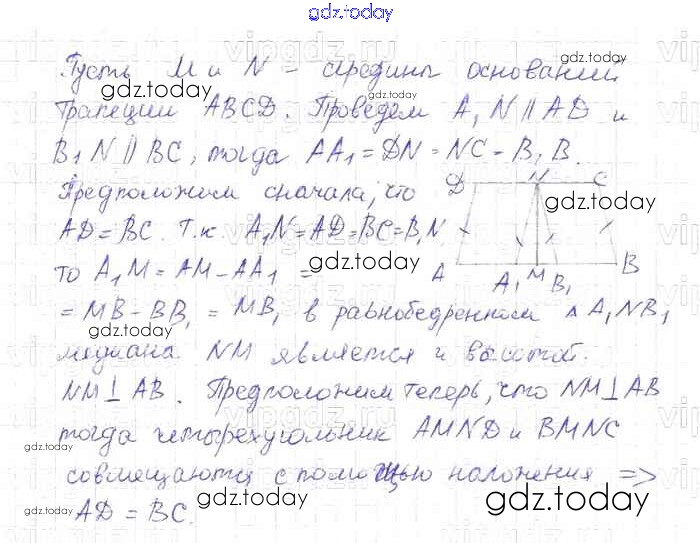 gdz.today
Пусть M и N - середины оснований
трапеции ABCD. Проведем A₁N ∥ AD и
B₁N ∥ BC, тогда AA₁ = DN = NC - B₁B.
Предположим сначала, что
AD = BC. Т.к. A₁N = AD = BC = B₁N
то A₁M = AM - AA₁ =
= MB - BB₁ = MB₁ в равнобедренном △ A₁NB₁
медиана NM является и высотой.
NM ⊥ AB. Предположим теперь, что NM ⊥ AB
тогда четырехугольник AMND и BMNC
совмещаются с помощью наложения =>
AD = BC.
D N C
A A₁ M B₁ B
gdz.today
gdz.today
gdz.today
gdz.today
gdz.today
gdz.today
gdz.today
gdz.today
gdz.today
gdz.today
gdz.today